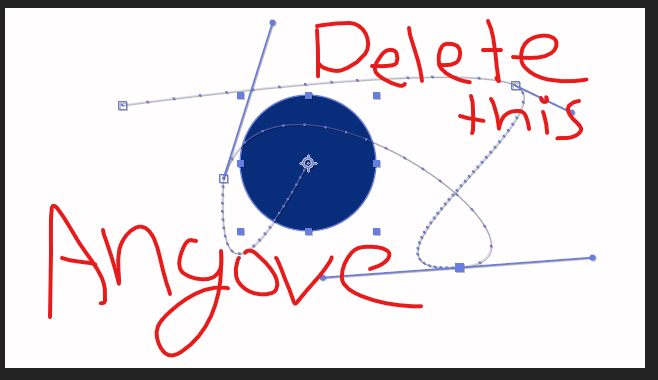 Delete
this
Angove